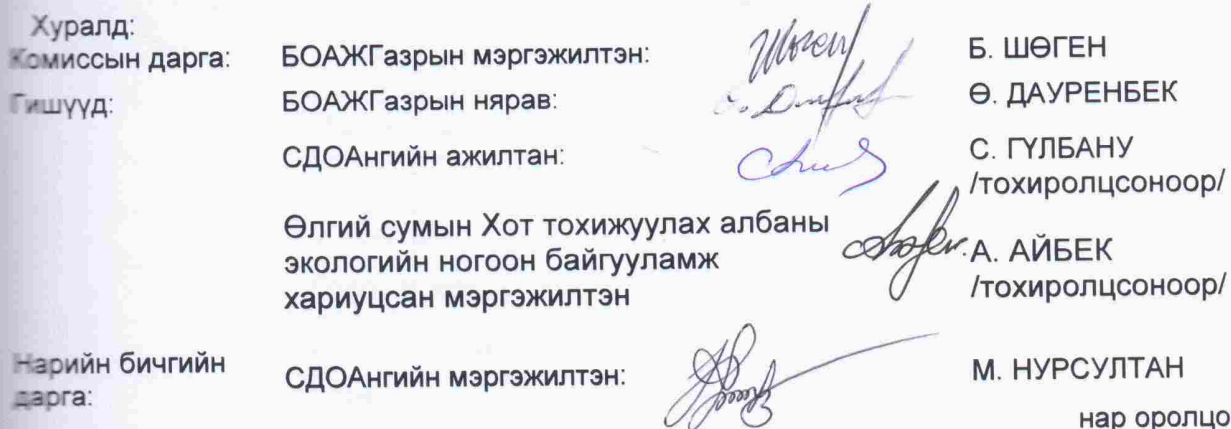 Хуралд:
Комиссын дарга: БОАЖГазрын мэргэжилтэн: Б. ШӨГЕН
Гишүүд: БОАЖГазрын нярав: Ө. ДАУРЕНБЕК
СДОАнгийн ажилтан: С. ГҮЛБАНУ
/тохиролцсоноор/
Өлгий сумын Хот тохижуулах албаны
экологийн ногоон байгууламж А. АЙБЕК
хариуцсан мэргэжилтэн /тохиролцсоноор/
Нарийн бичгийн
дарга: СДОАнгийн мэргэжилтэн: М. НУРСУЛТАН
нар оролцо